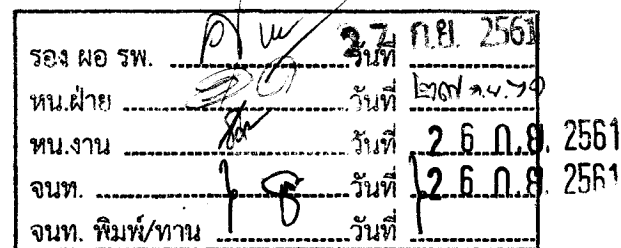 รอง ผอ รพ. วันที่ 27 ก.ย. 2561
หน.ฝ่าย วันที่ ๒๗
หน.งาน วันที่ 26 ก.ย. 2561
จนท. วันที่ 26 ก.ย. 2561
จนท. พิมพ์/ทาน วันที่